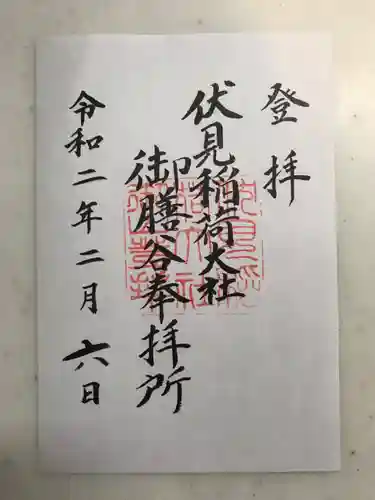 登拝
伏見稲荷大社
御膳谷奉拝所
令和二年二月六日